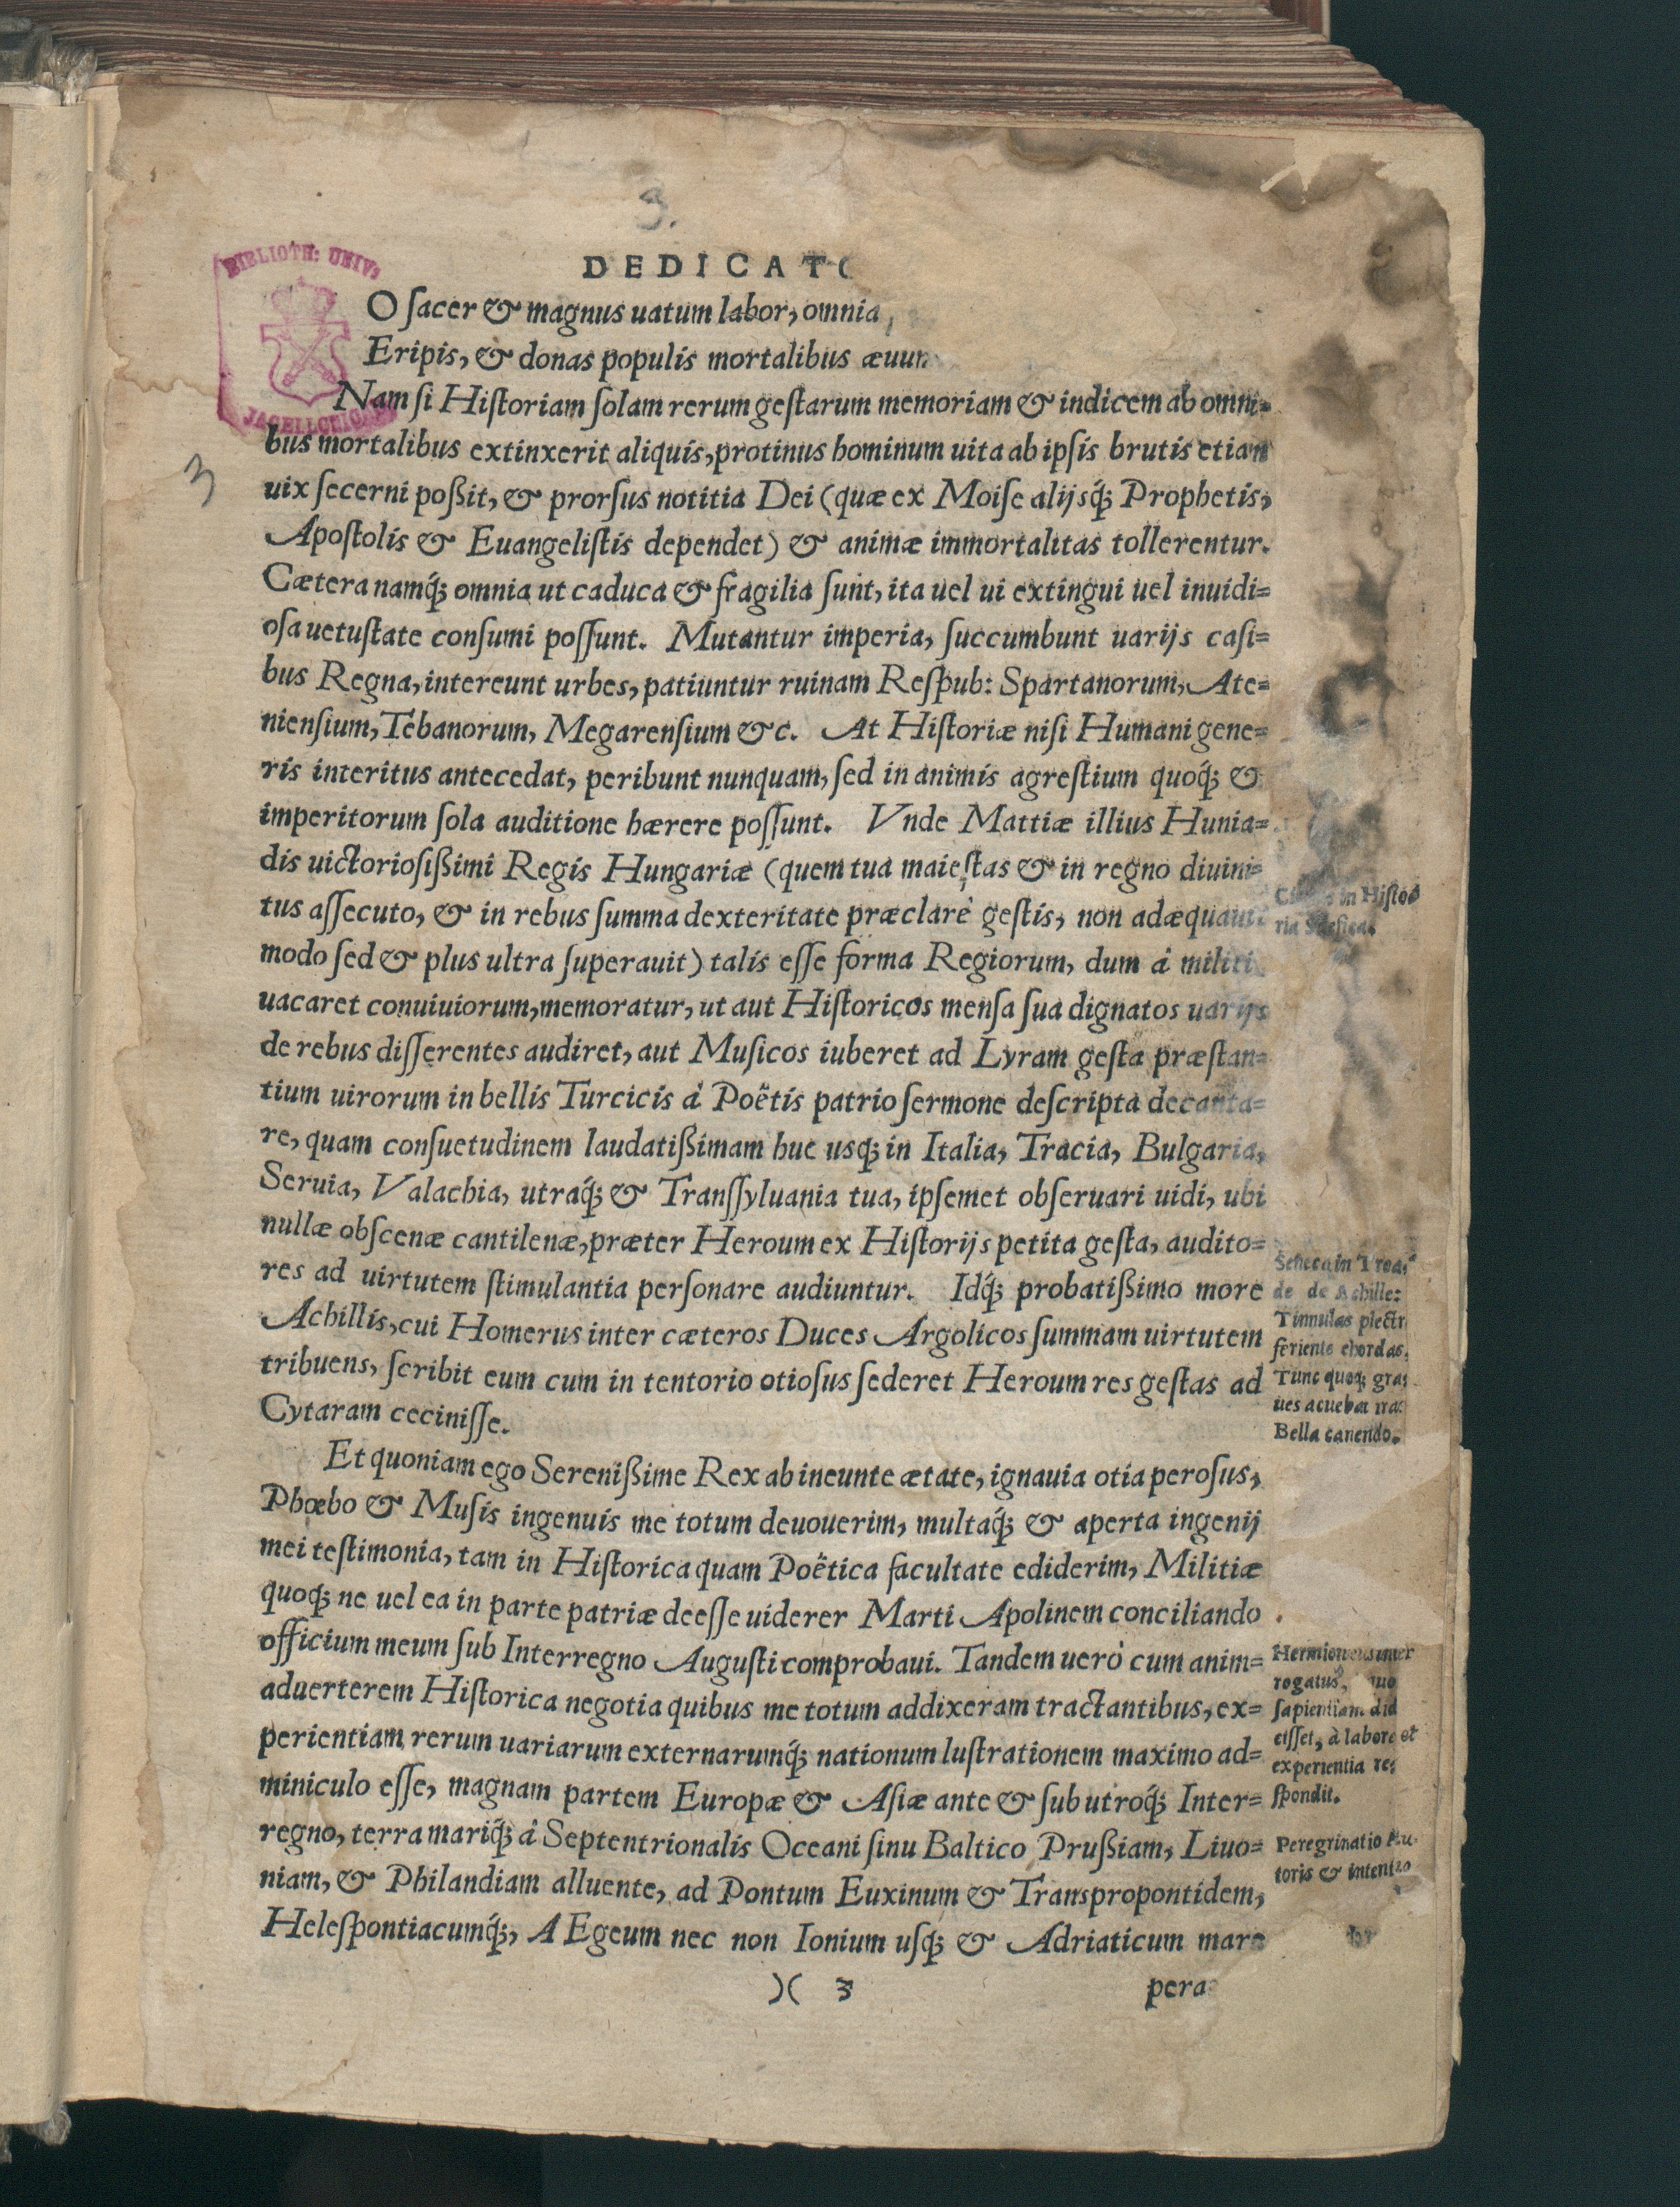 3.
BIBLIOTH: UNIV:
JAGELLONICA
DEDICATO
O ſacer & magnus uatum labor, omnia
Eripis, & donas populis mortalibus æuum
Nam ſi Hiſtoriam ſolam rerum geſtarum memoriam & indicem ab omni=
bus mortalibus extinxerit aliquis, protinus hominum uita ab ipſis brutis etiam
3
uix ſecerni poßit, & prorſus notitia Dei (quæ ex Moiſe alijsq́; Prophetis,
Apoſtolis & Euangeliſtis dependet) & animæ immortalitas tollerentur.
Cætera namq́; omnia ut caduca & fragilia ſunt, ita uel ui extingui uel inuidi=
oſa uetuſtate conſumi poſſunt. Mutantur imperia, ſuccumbunt uarijs caſi=
bus Regna, intereunt urbes, patiuntur ruinam Reſpub: Spartanorum, Ate=
nienſium, Tebanorum, Megarenſium &c. At Hiſtoriæ niſi Humani gene=
ris interitus antecedat, peribunt nunquam, ſed in animis agreſtium quoq́; &
imperitorum ſola auditione hærere poſſunt. Vnde Mattiæ illius Hunia=
dis uictorioſißimi Regis Hungariæ (quem tua maieſtas & in regno diuini=
tus aſſecuto, & in rebus ſumma dexteritate præclarè geſtis, non adæquauit
in Hiſto=
modo ſed & plus ultra ſuperauit) talis eſſe forma Regiorum, dum à militi
uacaret conuiuiorum, memoratur, ut aut Hiſtoricos menſa ſua dignatos uarijs
de rebus diſſerentes audiret, aut Muſicos iuberet ad Lyram geſta præſtan=
tium uirorum in bellis Turcicis à Poëtis patrio ſermone deſcripta decanta=
re, quam conſuetudinem laudatißimam huc usq́; in Italia, Tracia, Bulgaria,
Seruia, Valachia, utraq́; & Tranſſyluania tua, ipſemet obſeruari uidi, ubi
nullæ obſcenæ cantilenæ, præter Heroum ex Hiſtorijs petita geſta, audito=
res ad uirtutem ſtimulantia perſonare audiuntur. Idq́; probatißimo more
Achillis, cui Homerus inter cæteros Duces Argolicos ſummam uirtutem
tribuens, ſcribit eum cum in tentorio otioſus ſederet Heroum res geſtas ad
Cytaram ceciniſſe.
Seneca in Troa=
de de Achille:
Tinnulas plectr
feriens chordas,
Tunc quoq; gra=
ues acuebat iras
Bella canendo.
Et quoniam ego Sereniſſime Rex ab ineunte ætate, ignauia otia peroſus,
Phœbo & Muſis ingenuis me totum deuouerim, multaq́; & aperta ingenij
mei teſtimonia, tam in Hiſtorica quam Poëtica facultate ediderim, Militiæ
quoq́; ne uel ea in parte patriæ deeſſe uiderer Marti Apolinem conciliando
officium meum ſub Interregno Auguſti comprobaui. Tandem uerò cum anim=
aduerterem Hiſtorica negotia quibus me totum addixeram tractantibus, ex=
perientiam rerum uariarum externarumq́; nationum luſtrationem maximo ad=
miniculo eſſe, magnam partem Europæ & Aſiæ ante & ſub utroq́; Inter=
regno, terra mariq́; à Septentrionalis Oceani ſinu Baltico Prußiam, Liuo=
niam, & Philandiam alluente, ad Pontum Euxinum & Transpropontidem,
Heleſpontiacumq́;, AEgeum nec non Ionium uſq́; & Adriaticum mare
rogatus,
ſapientiam did
ciſſet, à labore et
experientia re=
ſpondit.
Peregrinatio Au=
toris & intentio
)( 3
pera=